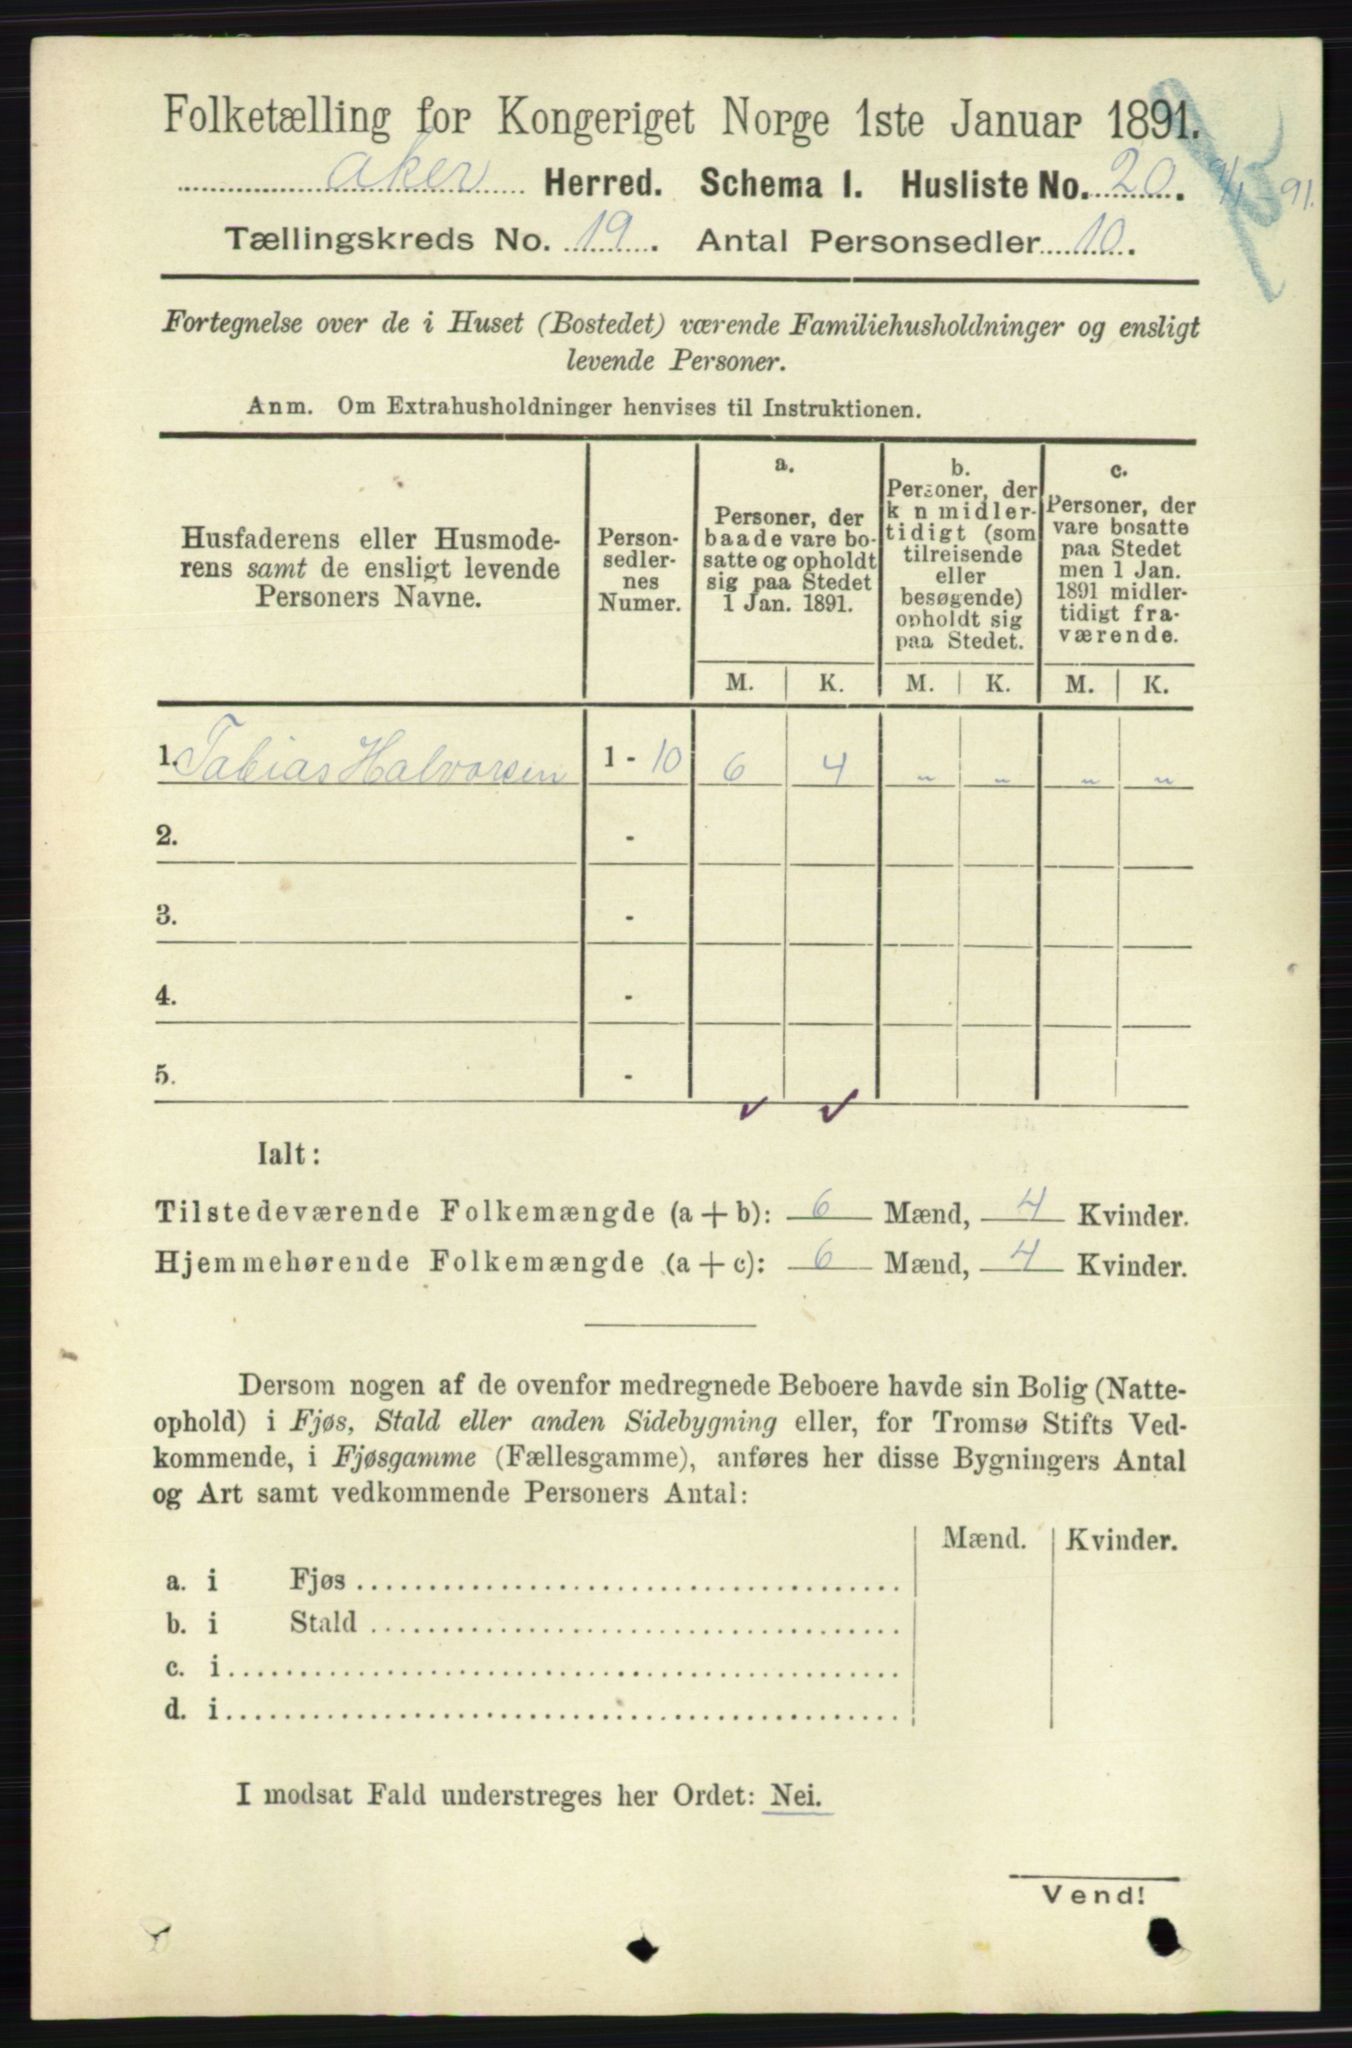 Folketælling for Kongeriget Norge 1ste Januar 1891.
Aker Herred. Schema 1. Husliste No. 20.
91.
Tællingskreds No. 19. Antal Personsedler 10.
Fortegnelse over de i Huset (Bostedet) værende Familiehusholdninger og ensligt
levende Personer.
Anm. Om Extrahusholdninger henvises til Instruktionen.
Husfaderens eller Husmode-
rens samt de ensligt levende
Personers Navne.
Person-
sedler-
nes
Numer.
a.
Personer, der
baade vare bo-
satte og opholdt
sig paa Stedet
1 Jan. 1891.
b.
Personer, der
k n midler-
tidigt (som
tilreisende
eller
besøgende)
opholdt sig
paa Stedet.
c.
Personer, der
vare bosatte
paa Stedet
men 1 Jan.
1891 midler-
tidigt fra-
værende.
M. K. M. K. M. K.
1. Tobias Halvorsen 1 - 10 6 4 „ „ „ „
2. -
3. -
4. -
5. -
✓ ✓
Ialt:
Tilstedeværende Folkemængde (a + b): 6 Mænd, 4 Kvinder.
Hjemmehørende Folkemængde (a + c): 6 Mænd, 4 Kvinder.
Dersom nogen af de ovenfor medregnede Beboere havde sin Bolig (Natte-
ophold) i Fjøs, Stald eller anden Sidebygning eller, for Tromsø Stifts Ved-
kommende, i Fjøsgamme (Fællesgamme), anføres her disse Bygningers Antal
og Art samt vedkommende Personers Antal:
Mænd. Kvinder.
a. i Fjøs
b. i Stald
c. i
d. i
I modsat Fald understreges her Ordet: Nei.
Vend!